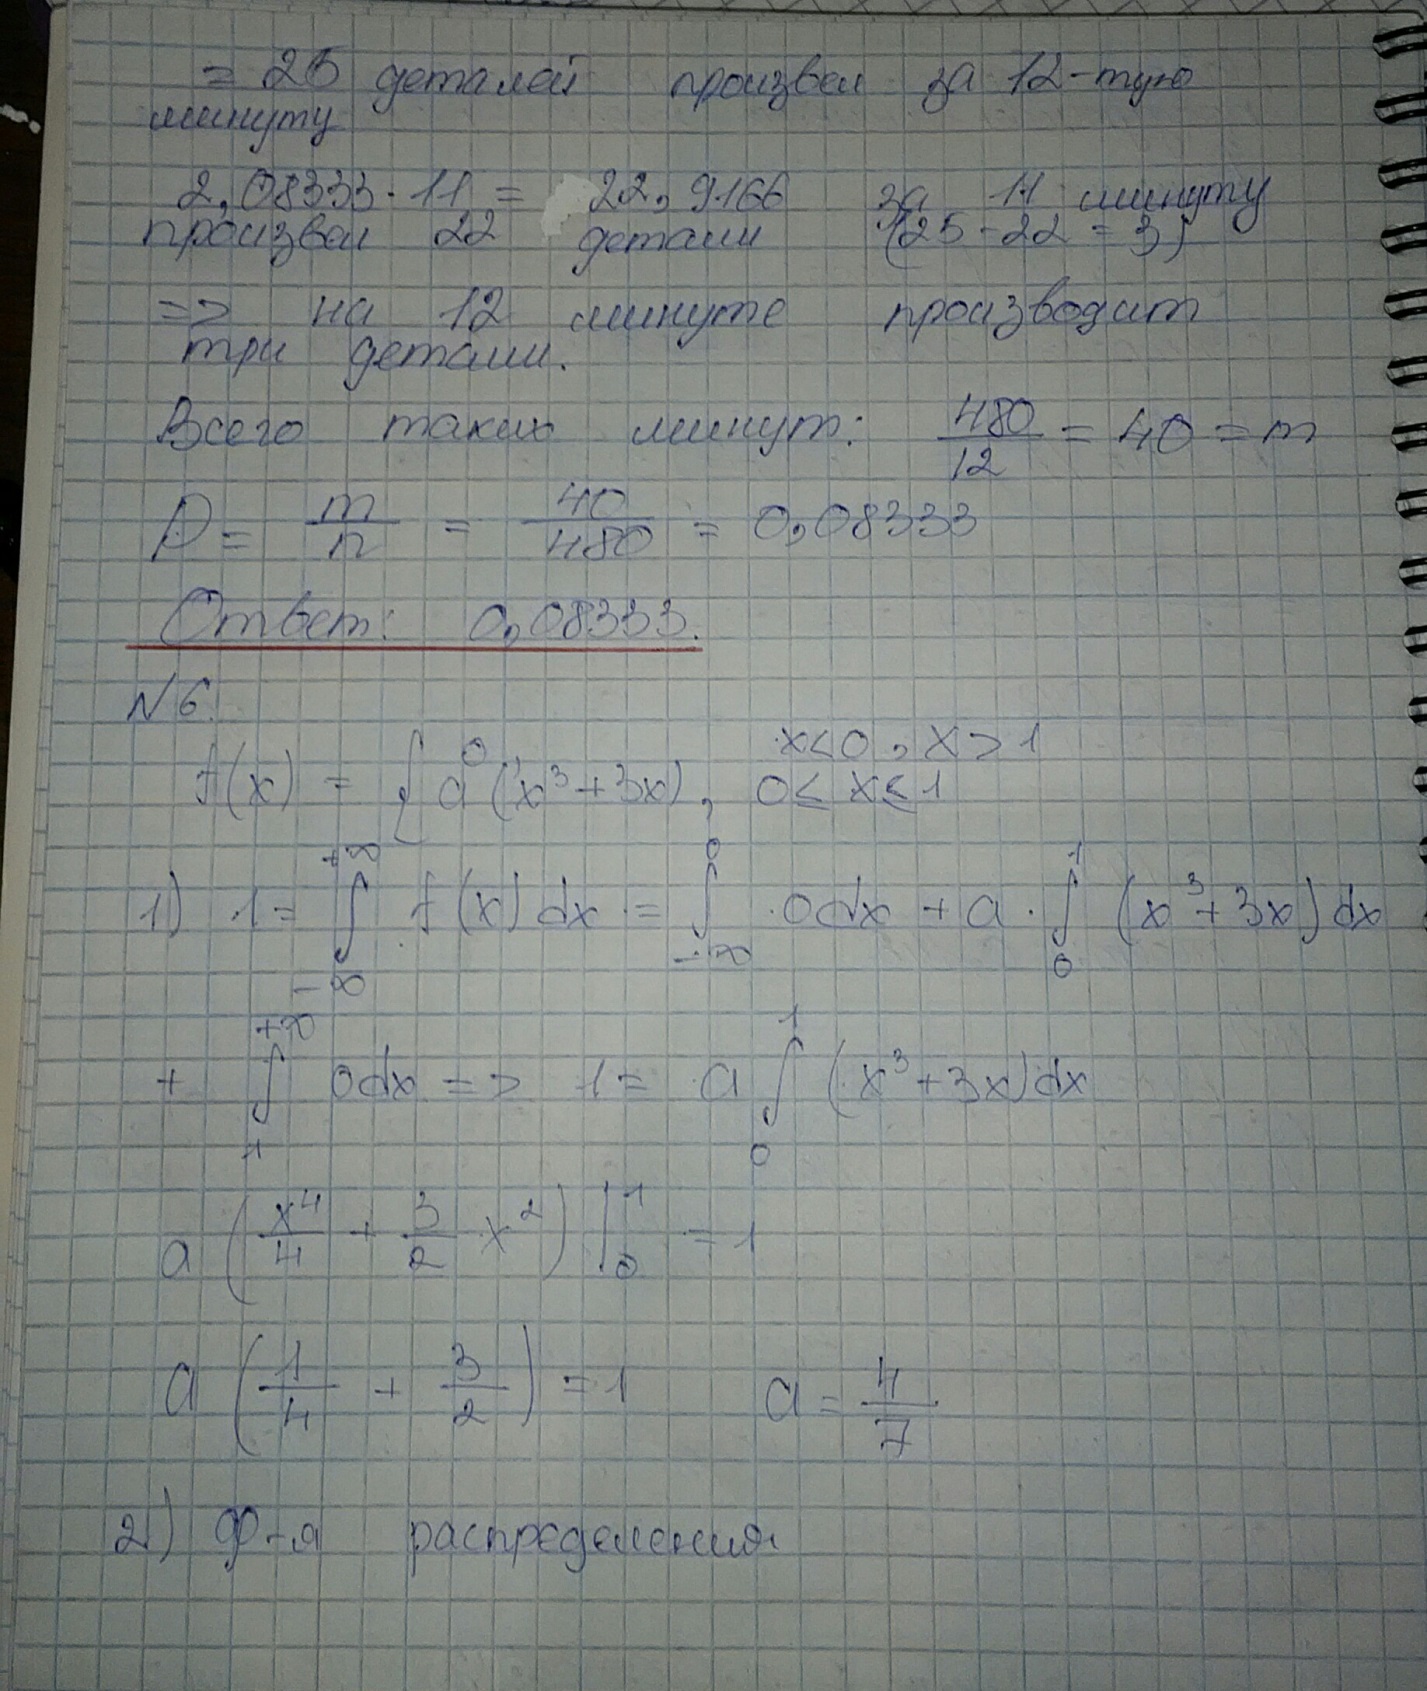 = 25 деталей произвел за 12-тую
минуту
2,08333 · 11 = 22,9166 за 11 минуту
произвел 22 детали (25 - 22 = 3)
=> на 12 минуте производит
три детали.
Всего таких минут: 480/12 = 40 = m
P = m/n = 40/480 = 0,08333
Ответ: 0,08333.
№6.
f(x) = { 0, x<0, x>1
a(x³+3x), 0≤ x≤1
1) 1 = ∫_{-∞}^{+∞} f(x)dx = ∫_{-∞}^{0} 0dx + a · ∫_{0}^{1} (x³+3x)dx
+ ∫_{1}^{+∞} 0dx => 1 = a ∫_{0}^{1} (x³+3x)dx
a (x⁴/4 + 3/2 x²) |_{0}^{1} = 1
a (1/4 + 3/2) = 1 a = 4/7
2) Ф-я распределения